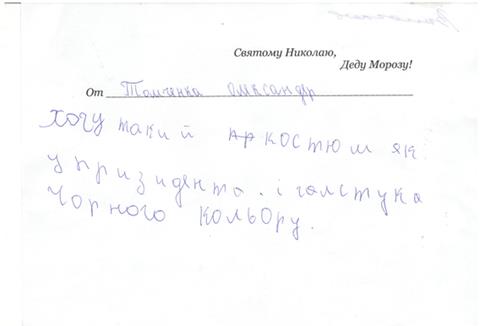 Святому Николаю,
Деду Морозу!
От Томченка олександр
хочу такий костюм як
у призидента. і галстука
чорного кольору.